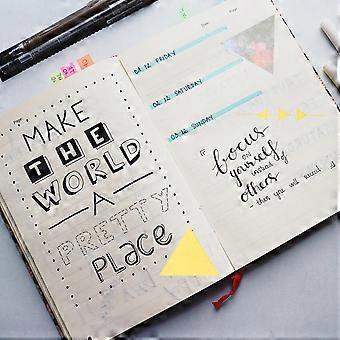 Page:
MAKE
THE
WORLD
A
PRETTY
PLACE
Date:
Page:
01.12 FRIDAY
02.12 SATURDAY
03.12 SUNDAY
"focus
on
yourself
instead of
others
- then you will succeed